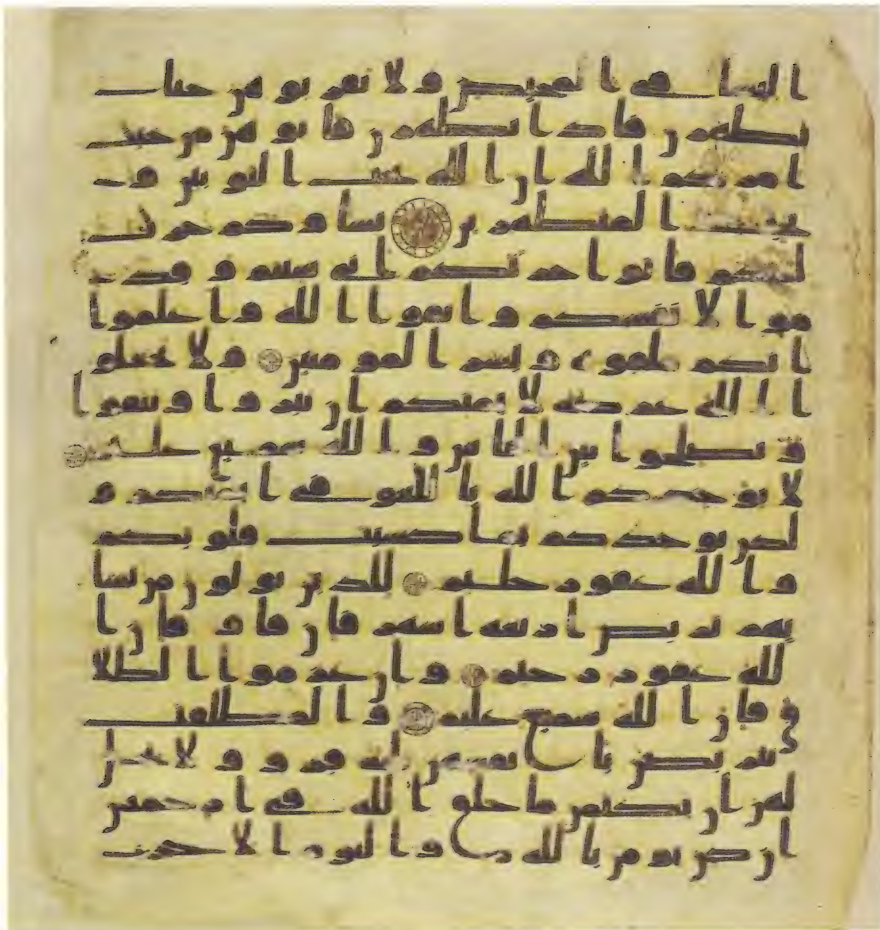 النسا في المحيض ولا تقربوهن حتى
يطهرن فاذا تطهرن فاتوهن من حيث
امركم الله ان الله يحب التوبين و
يحب المتطهرين نساوكم حرث
لكم فاتوا حرثكم انى شيتم وقد
موا لانفسكم واتقوا الله واعلموا
انكم ملقوه وبشر المومنين ولا تجعلو
ا الله عرضة لايمنكم ان تبروا وتتقوا
وتصلحوا بين الناس والله سميع عليم
لا يوخذكم الله باللغو في ايمنكم و
لكن يوخذكم بما كسبت قلوبكم
والله غفور حليم للذين يولون من نسا
يهم تربص اربعة اشهر فان فاو فان ا
لله غفور رحيم وان عزموا الطلا
ق فان الله سميع عليم والمطلقت
يتربصن بانفسهن ثلثة قرو ولا يحل
لهن ان يكتمن ما خلق الله في ارحمهن
ان كن يومن بالله واليوم الاخر و